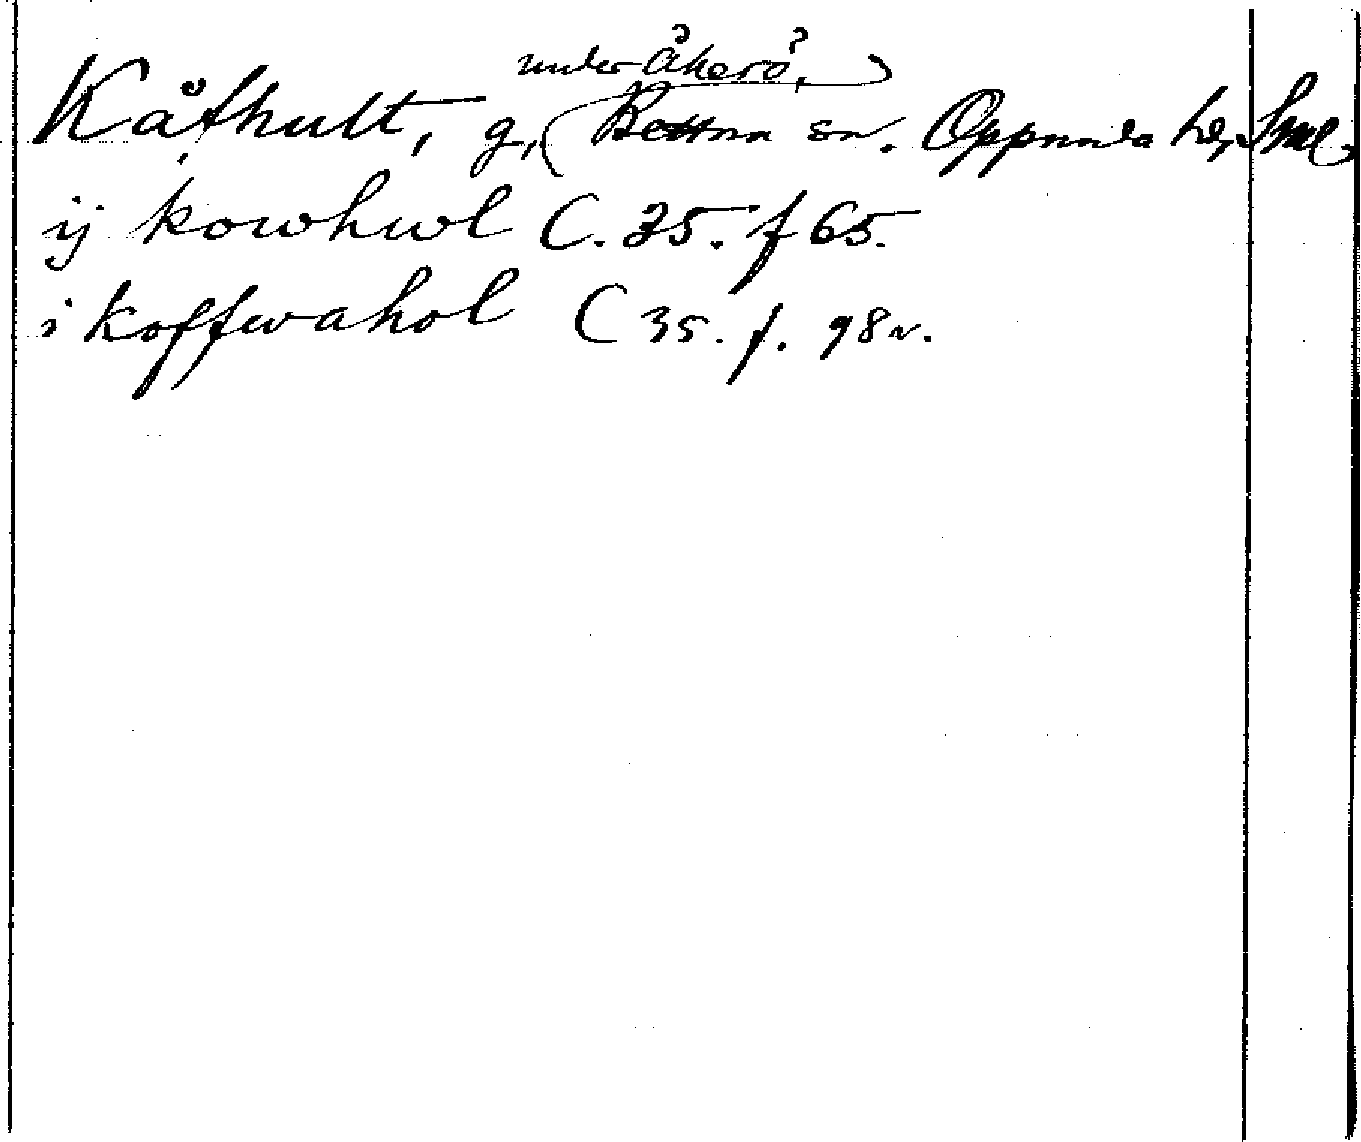 under Åkerö,)
Kåfhult, g, (Bettna sn. Oppunda hd, Sml.
ij kowhwl C. 35. f 65.
i koffwahol C 35. f. 98v.